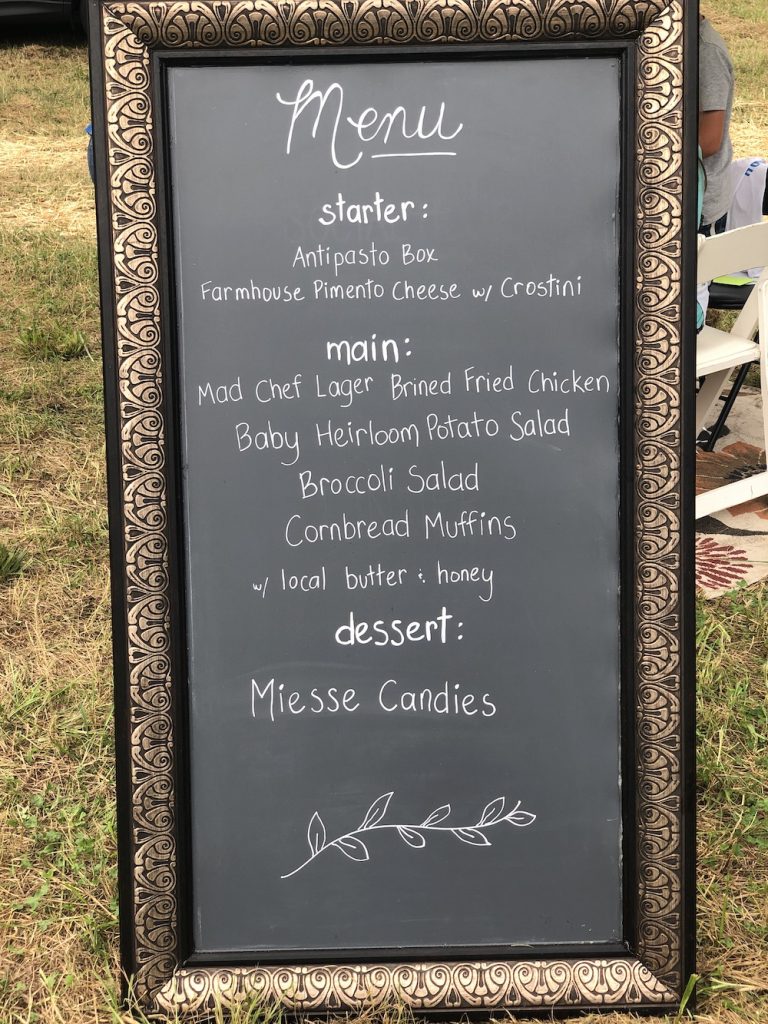 Menu
starter:
Antipasto Box
Farmhouse Pimento Cheese w/ Crostini
main:
Mad Chef Lager Brined Fried Chicken
Baby Heirloom Potato Salad
Broccoli Salad
Cornbread Muffins
w/ local butter & honey
dessert:
Miesse Candies